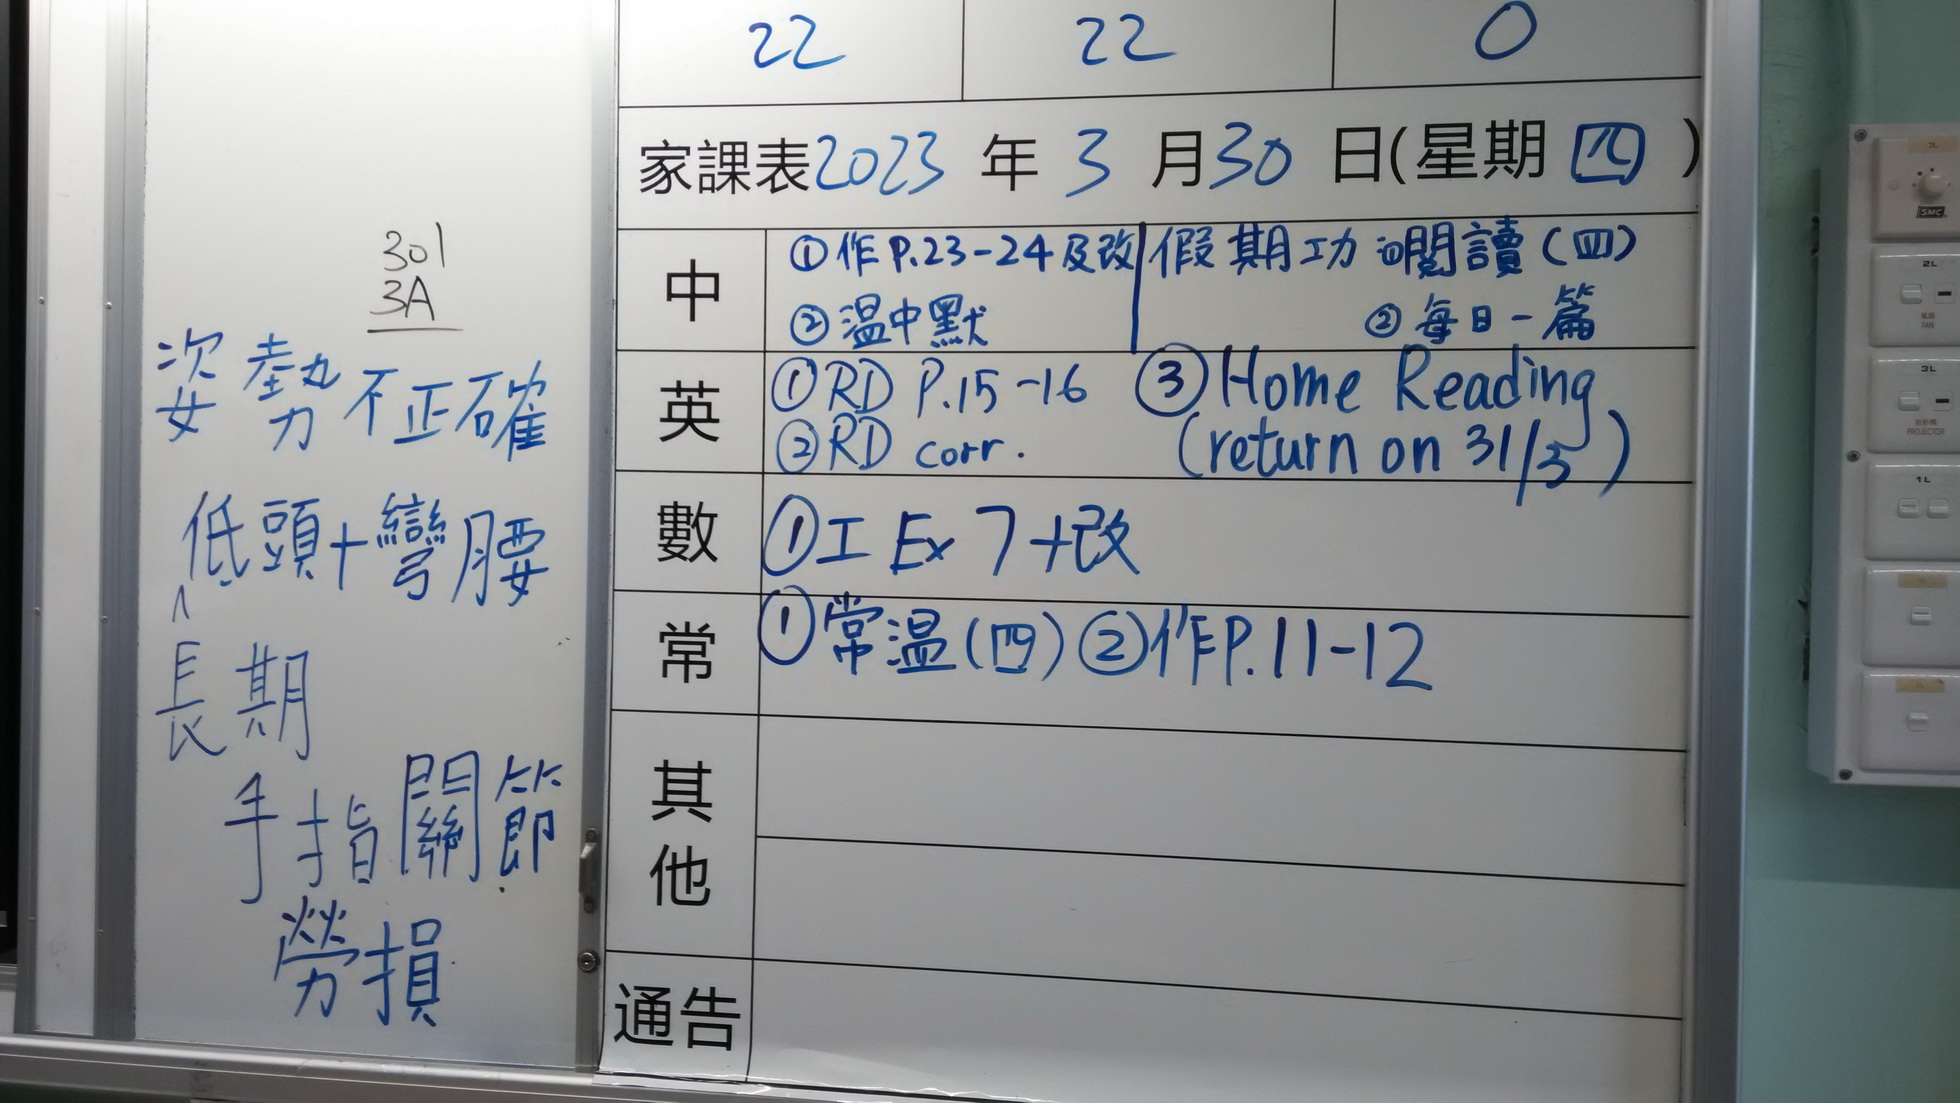 301
3A
姿勢不正確
低頭+彎腰
長期
手指關節
勞損
22 22 0
家課表2023年3月30日(星期四)
中 ①作P.23-24及改 假期工功 ①閱讀(四)
②溫中默 ②每日一篇
英 ①RD P.15-16 ③Home Reading
②RD corr. (return on 31/3)
數 ①工 Ex 7+改
常 ①常溫(四) ②作P.11-12
其他
通告
SMC
2L
FAN
3L
PROJECTOR
1L